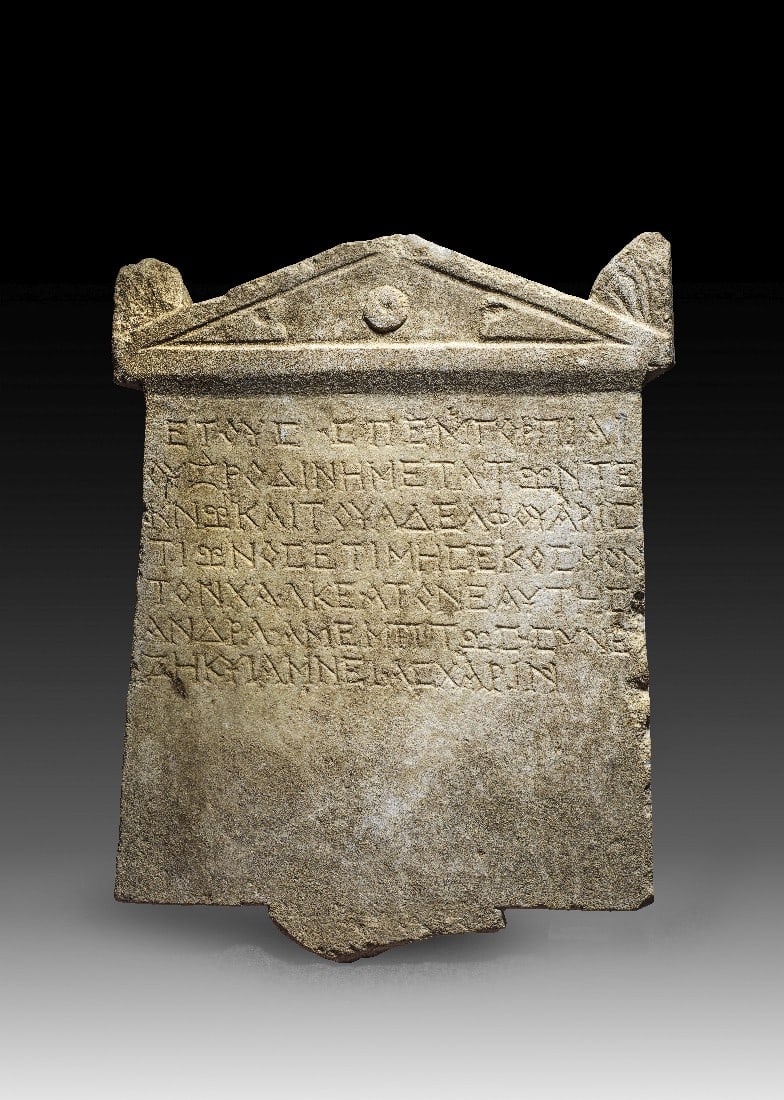 ΕΤΟΥΣ ΣΠΕ ΝΤΟΡΠΙΑΙ
ΟΥ ΣΡΟΔΙΝΗ ΜΕΤΑ ΤΩΝ ΤΕ
ΚΝΩ ΚΑΙ ΤΟΥ ΑΔΕΛΦΟΥ ΑΡΙΣ
ΤΙΩΝΟΣ ΕΤΙΜΗΣΕ ΚΟΣΜΟΝ
ΤΟΝ ΧΑΛΚΕΑ ΤΟΝ ΕΑΥΤΗΣ
ΑΝΔΡΑ ΑΜΕΜΠΤΩΣ ΣΥΝΕ
ΖΗΚΥΙΑ ΜΝΕΙΑΣ ΧΑΡΙΝ